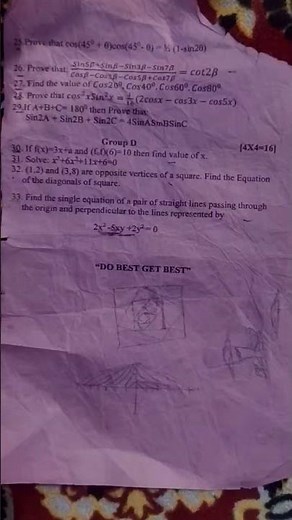 25. Prove that cos(45⁰ + θ)cos(45⁰-θ) = ½ (1-sin2θ)
26. Prove that: (Sin5β+Sinβ-Sin3β-Sin7β)/(Cosβ-Cos3β-Cos5β+Cos7β) = cot2β
27. Find the value of Cos20⁰, Cos40⁰, Cos60⁰, Cos80⁰
28. Prove that cos³xSin²x = (2cosx - cos3x - cos5x)
29. If A+B+C= 180⁰ then Prove that
Sin2A + Sin2B + Sin2C = 4SinASinBSinC
Group D [4X4=16]
30. If f(x)=3x+a and (f.f)(6)=10 then find value of x.
31. Solve: x³+6x²+11x+6=0
32. (1,2) and (3,8) are opposite vertices of a square. Find the Equation
of the diagonals of square.
33. Find the single equation of a pair of straight lines passing through
the origin and perpendicular to the lines represented by
2x²-5xy+2y²=0
"DO BEST GET BEST"